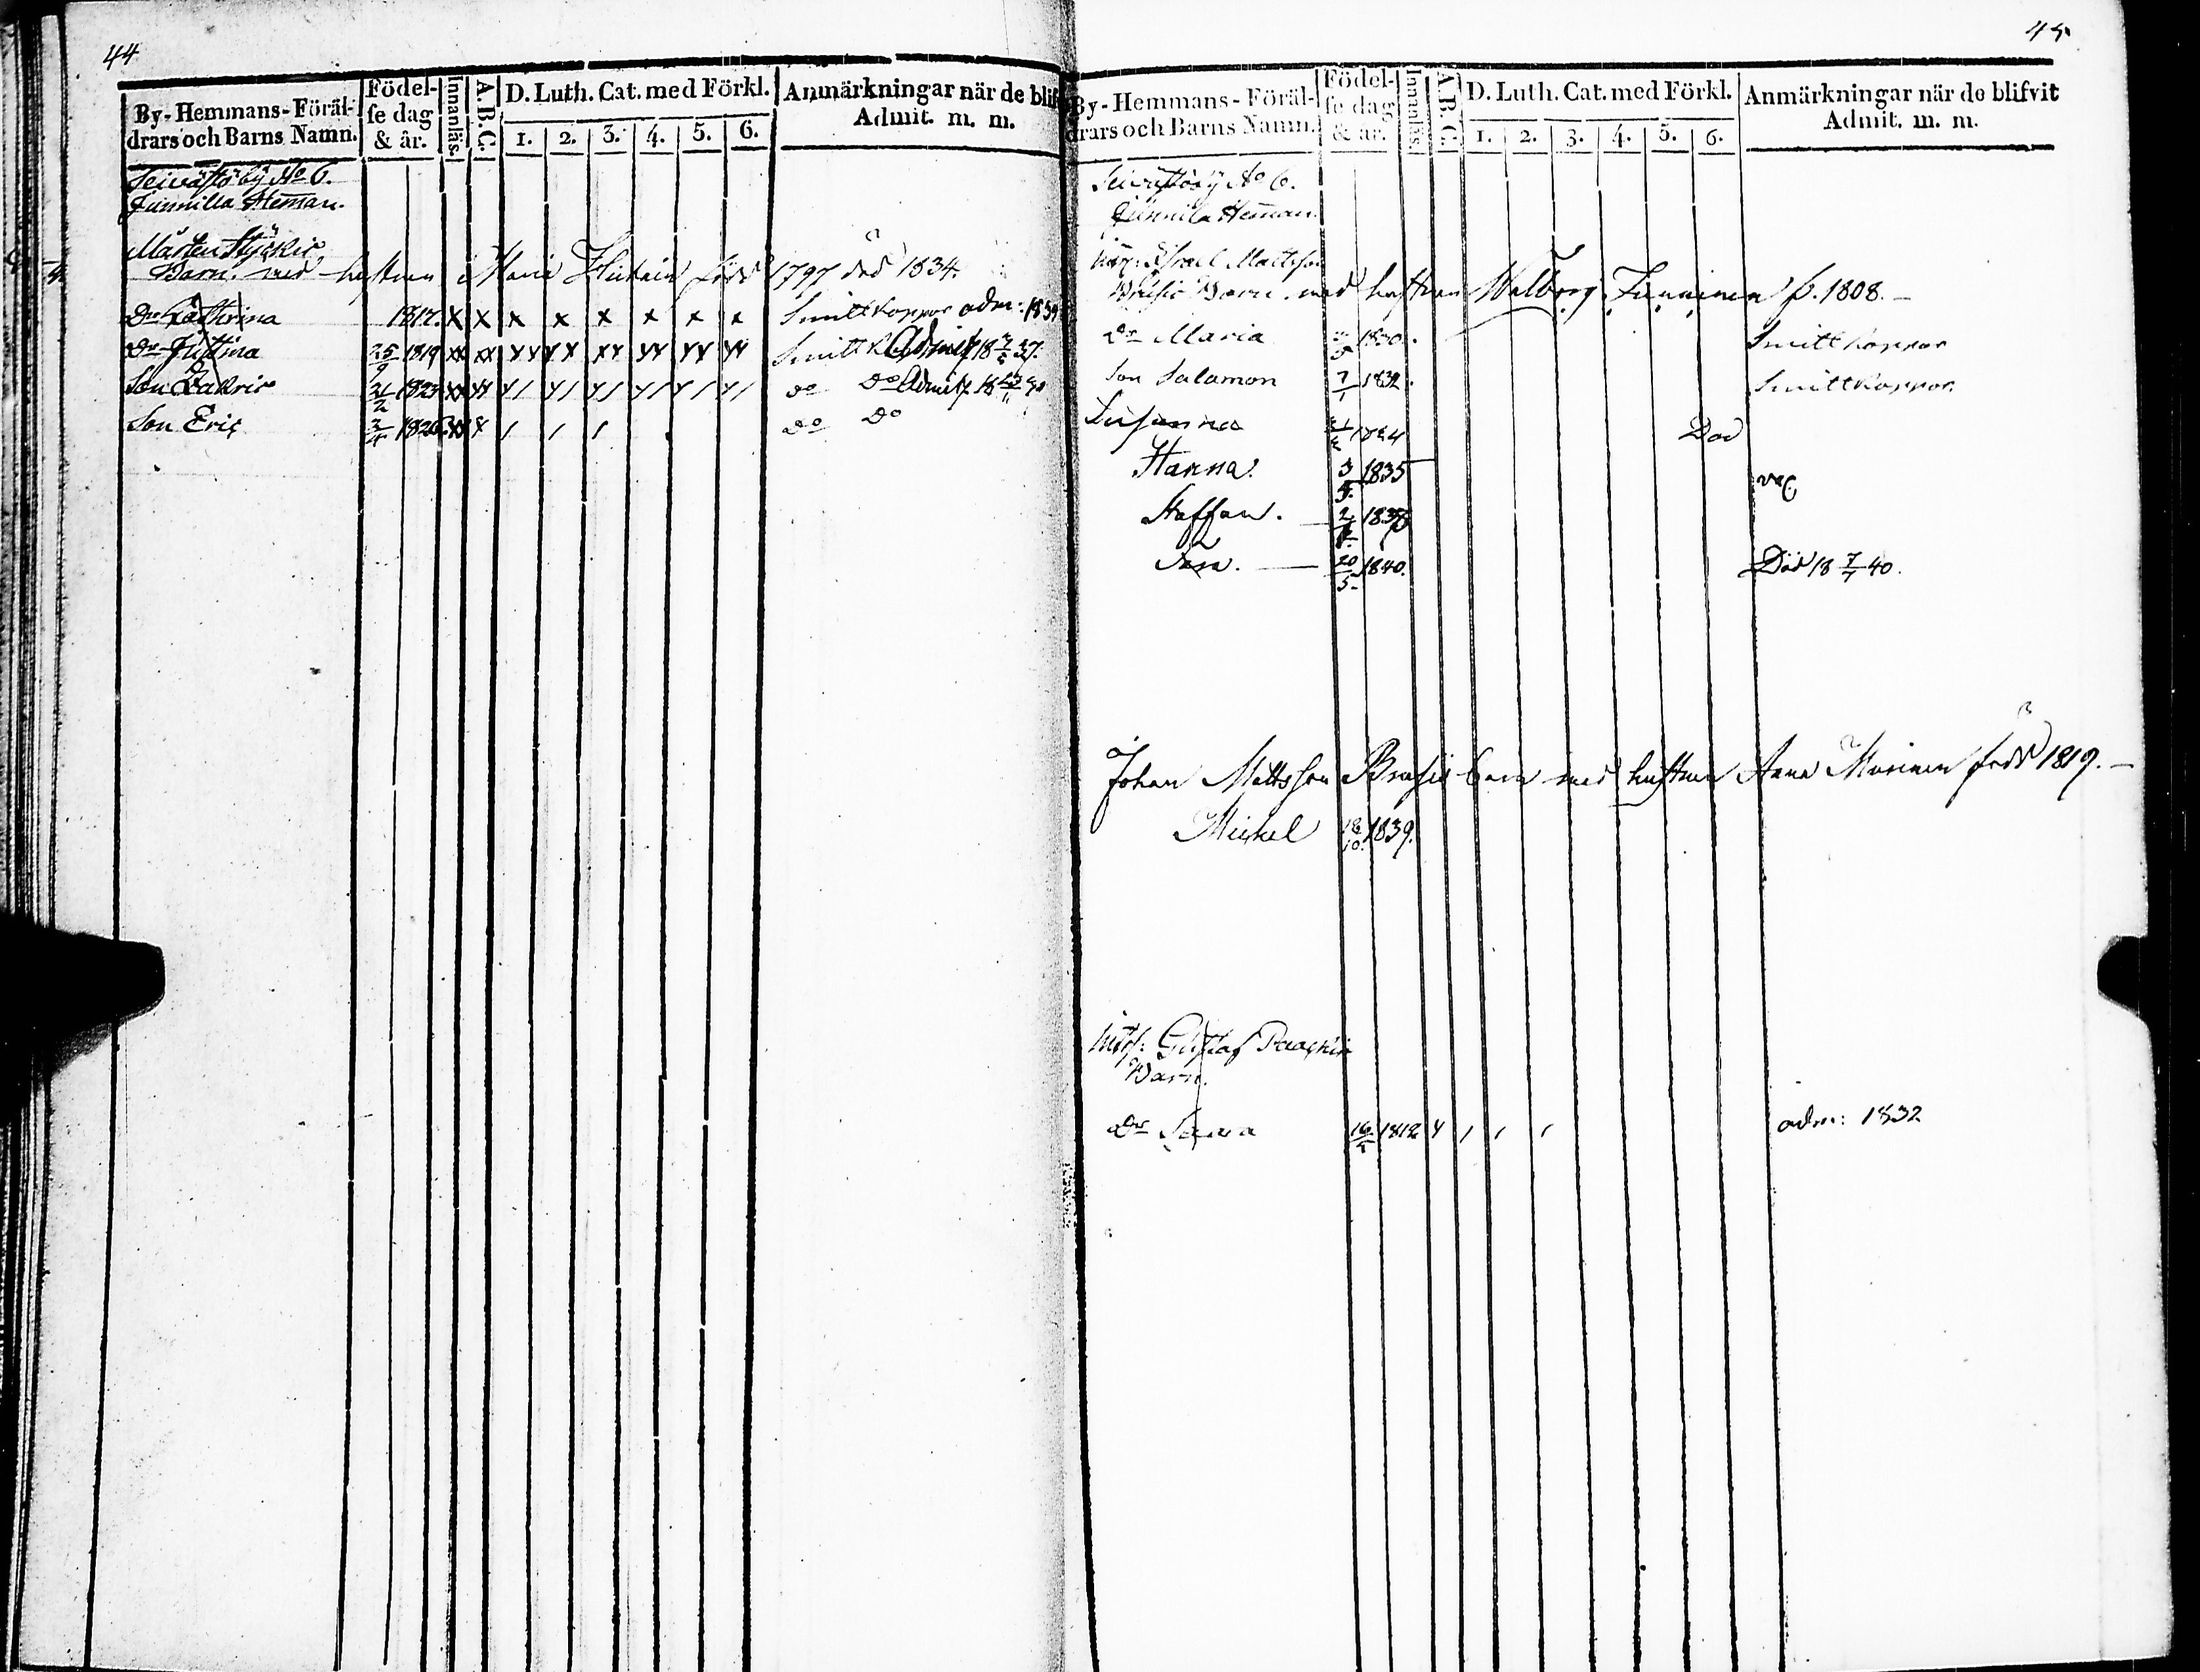 44
By-Hemmans-Föräl-
drars och Barns Namn.
Födel-
se dag
& år.
Innanläs.
A.B.C.
D. Luth. Cat. med Förkl.
1. 2. 3. 4. 5. 6.
Anmärkningar när de blif
Admit. m. m.
Seivästö by No 6.
Junnilla Heman.
Mårten
Barn. med hustrun Maria född 1797 död 1834.
Dr Kathrina 1817. x x x x x x x x Smittkoppor adm: 1834
Dr Justina 25/9 1819 Smitt k Admit. 37.
Son Zakris 21/2 1823 do do Admit.
Son Eric 3/4 1826 x / / / do do
45
By-Hemmans-Föräl-
drars och Barns Namn.
Födel-
se dag
& år.
Innanläs.
A.B.C.
D. Luth. Cat. med Förkl.
1. 2. 3. 4. 5. 6.
Anmärkningar när de blifvit
Admit. m. m.
Seivästö by No 6.
Junnila Heman.
Israel Mattsson
Barn. med hustrun Walborg f. 1808.
Dr Maria 1830. Smittkoppor
Son Salamon 7/1 1832. Smittkoppor
Susanna 1834 Död
Hanna. 3/5. 1835 vac.
Staffan. 1838
20/5 1840. Död 18 7/7 40.
Johan Mattsson barn med hustrun Anna född 1819.
Michel 18/10. 1839.
Gustaf
Barn.
Dr 1812 adm: 1832